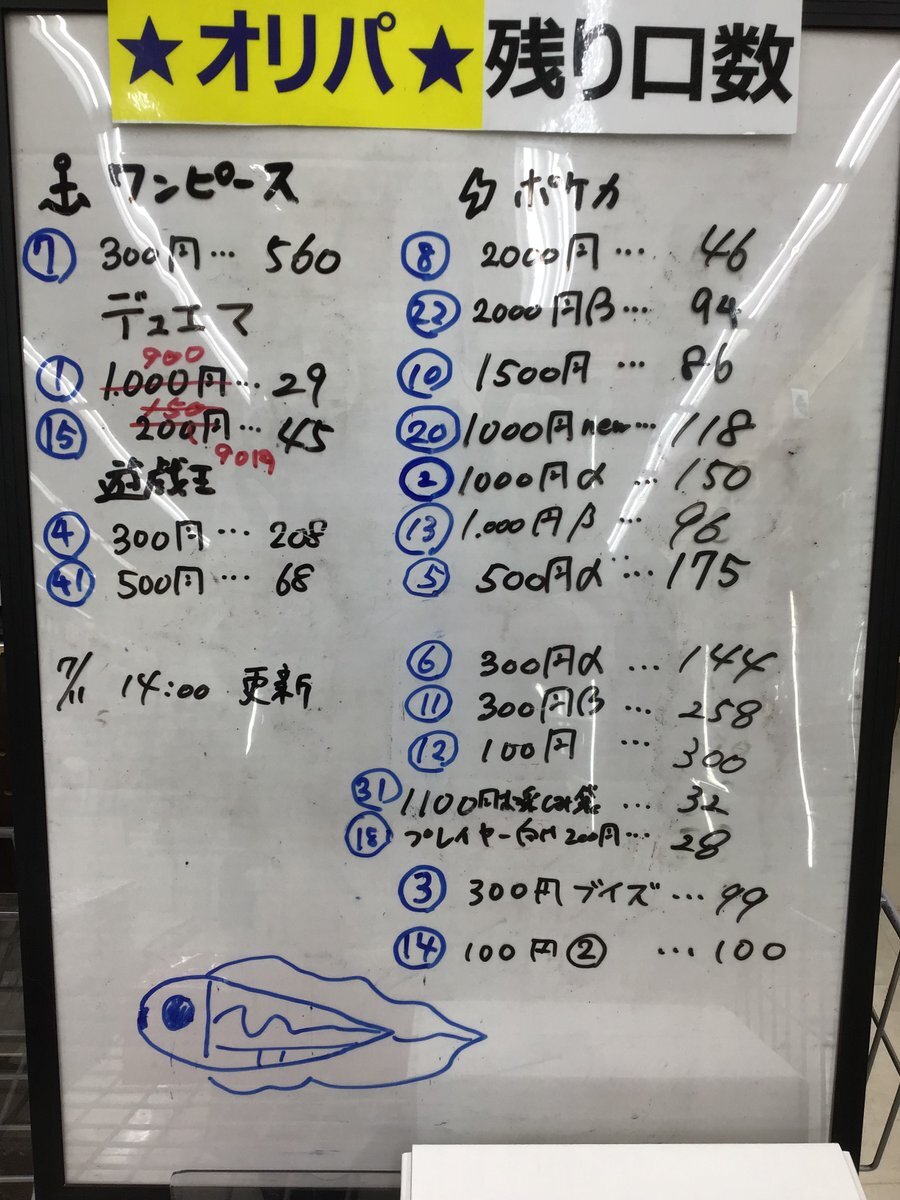 ★オリパ★残り口数
ワンピース
⑦ 300円… 560
デュエマ
900
① 1.000円… 29
150
⑮ 200円… 45
遊戯王
④ 300円… 208
㊶ 500円… 68
7/11 14:00 更新
ポケカ
⑧ 2000円… 46
㉒ 2000円β… 94
⑩ 1500円… 86
⑳ 1000円new… 118
② 1000円α… 150
⑬ 1.000円β… 96
⑤ 500円α… 175
⑥ 300円α… 144
⑪ 300円β… 258
⑫ 100円… 300
㉛ 1100円お楽しみ袋… 32
⑱ プレイヤー向け200円… 28
③ 300円ブイズ… 99
⑭ 100円② …100